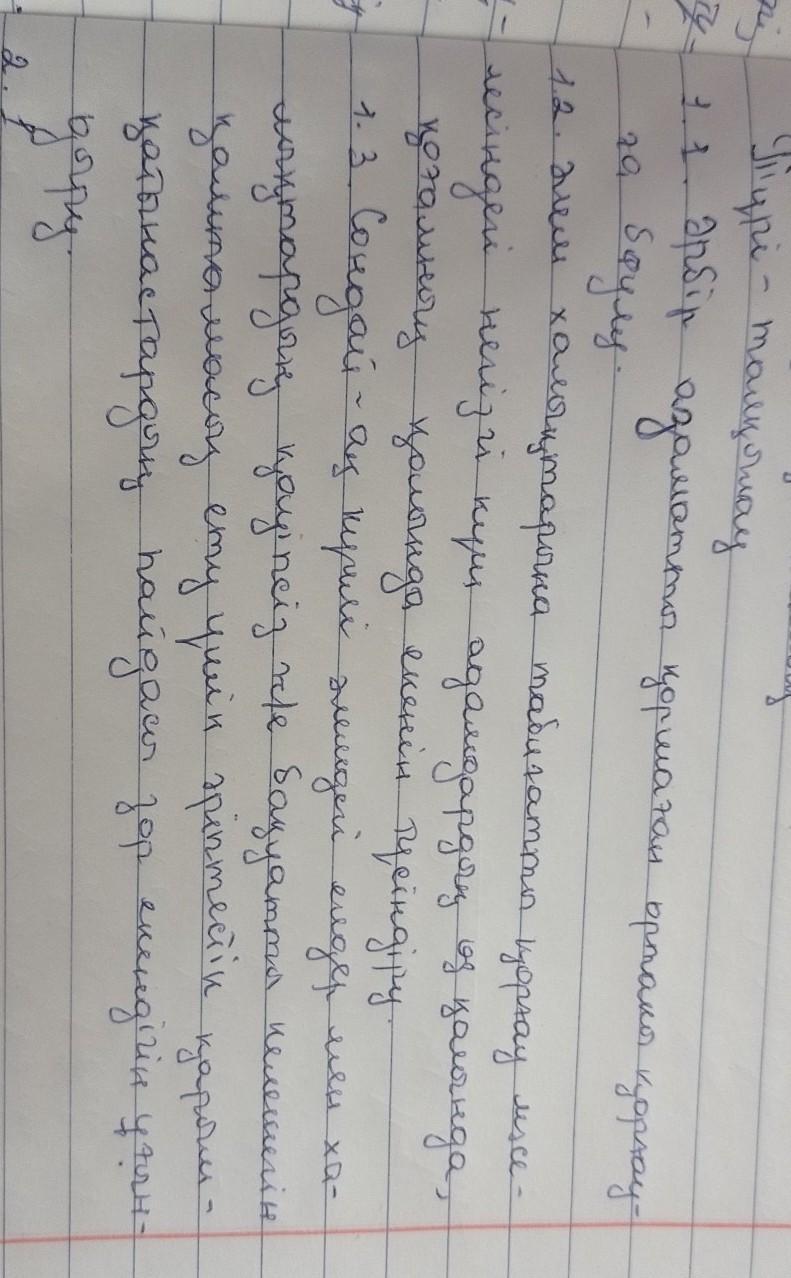 Түрі - талқылау
1.1. Әрбір адаматты қоршаған ортаны қорғау-
ға баулу.
1.2. Әлем халықтарына табиғатты қорғау мәсе-
лесіндегі негізгі күш адамдардың өз қолында,
қоғамның қолында екенін түсіндіру.
1.3. Сондай-ақ күллі әлемдегі елдер мен ха-
лықтардың қауіпсіз және бақуатты келешегін
қамтамасыз ету үшін әріптестік қарым-
қатынастардың пайдасы зор екендігін ұғын-
дыру.
2.